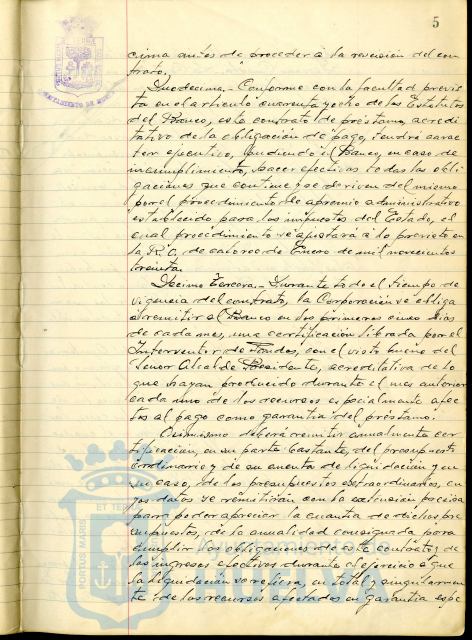 5
cima antes de proceder a la revisión del con-
trato.
Duodecima.- Conforme con la facultad previs-
ta en el articulo cuarenta y ocho de los Estatutos
del Banco, este contrato de préstamo, acredi-
tativo de la obligación de pago, tendrá carac-
ter ejecutivo, pudiendo el Banco, en caso de
incumplimiento, hacer efectivas todas las obli-
gaciones que contiene y se deriven del mismo
por el procedimiento de apremio administrativo
establecido para los impuestos del Estado, el
cual procedimiento se ajustará a lo previsto en
la R.O. de catorce de Enero de mil novecientos
treinta.
Decimo Tercera.- Durante todo el tiempo de
vigencia del contrato, la Corporación se obliga
a remitir al Banco en los primeros cinco dias
de cada mes, una certificación librada por el
Interventor de Fondos, con el visto bueno del
Señor Alcalde Presidente, acreditativa de lo
que hayan producido durante el mes anterior
cada uno de los recursos especialmente afec-
tos al pago como garantia del préstamo.
Asimismo deberá remitir anualmente cer-
tificacion, en su parte bastante, del presupuesto
ordinario y de su cuenta de liquidación y en
su caso, de los presupuestos extraordinarios, cu-
yos datos se remitirán con la extensión precisa
para poder apreciar la cuantia de dichos pre-
supuestos, de la anualidad consignada para
cumplir las obligaciones de este contrato y de
los ingresos efectivos durante el ejercicio a que
la liquidación se refiera, en total y singularmen-
te de los recursos afectados en garantia espe
PORTUS MARIS ET TERRAE
Ayuntamiento de